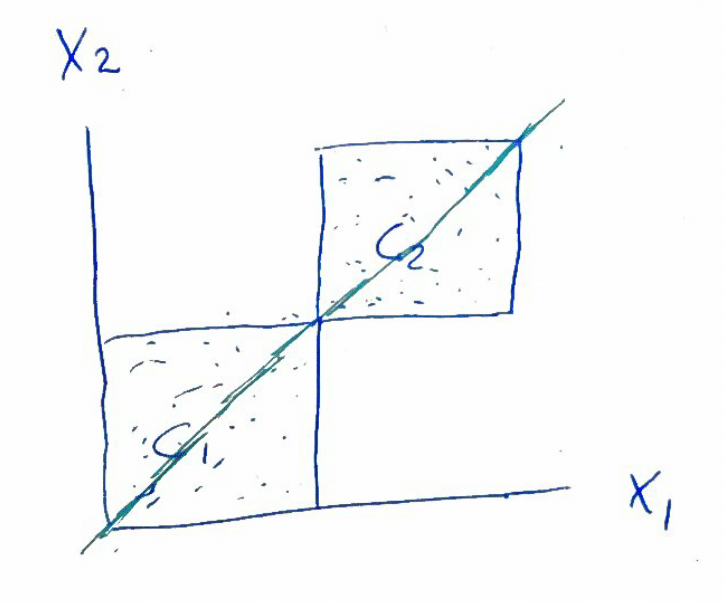 X2
C2
C1
X1